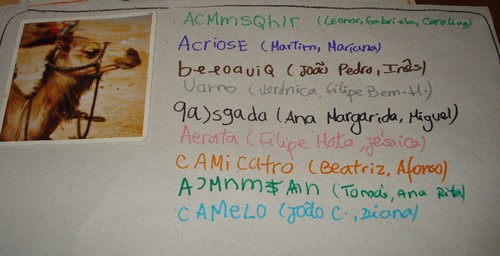 ACMmsQhir (Leonor, Gabriela, Carolina)
ACriOSE (Martim, Mariana)
(João Pedro, Inês)
Uarno (Verónica, Filipe Bem-H.)
9a)sgada (Ana Margarida, Miguel)
Aerata (Filipe Mota, Jéssica)
CAMiCAtro (Beatriz, Afonso)
(Tomás, Ana Rita)
CAMELO (João C., Diana)